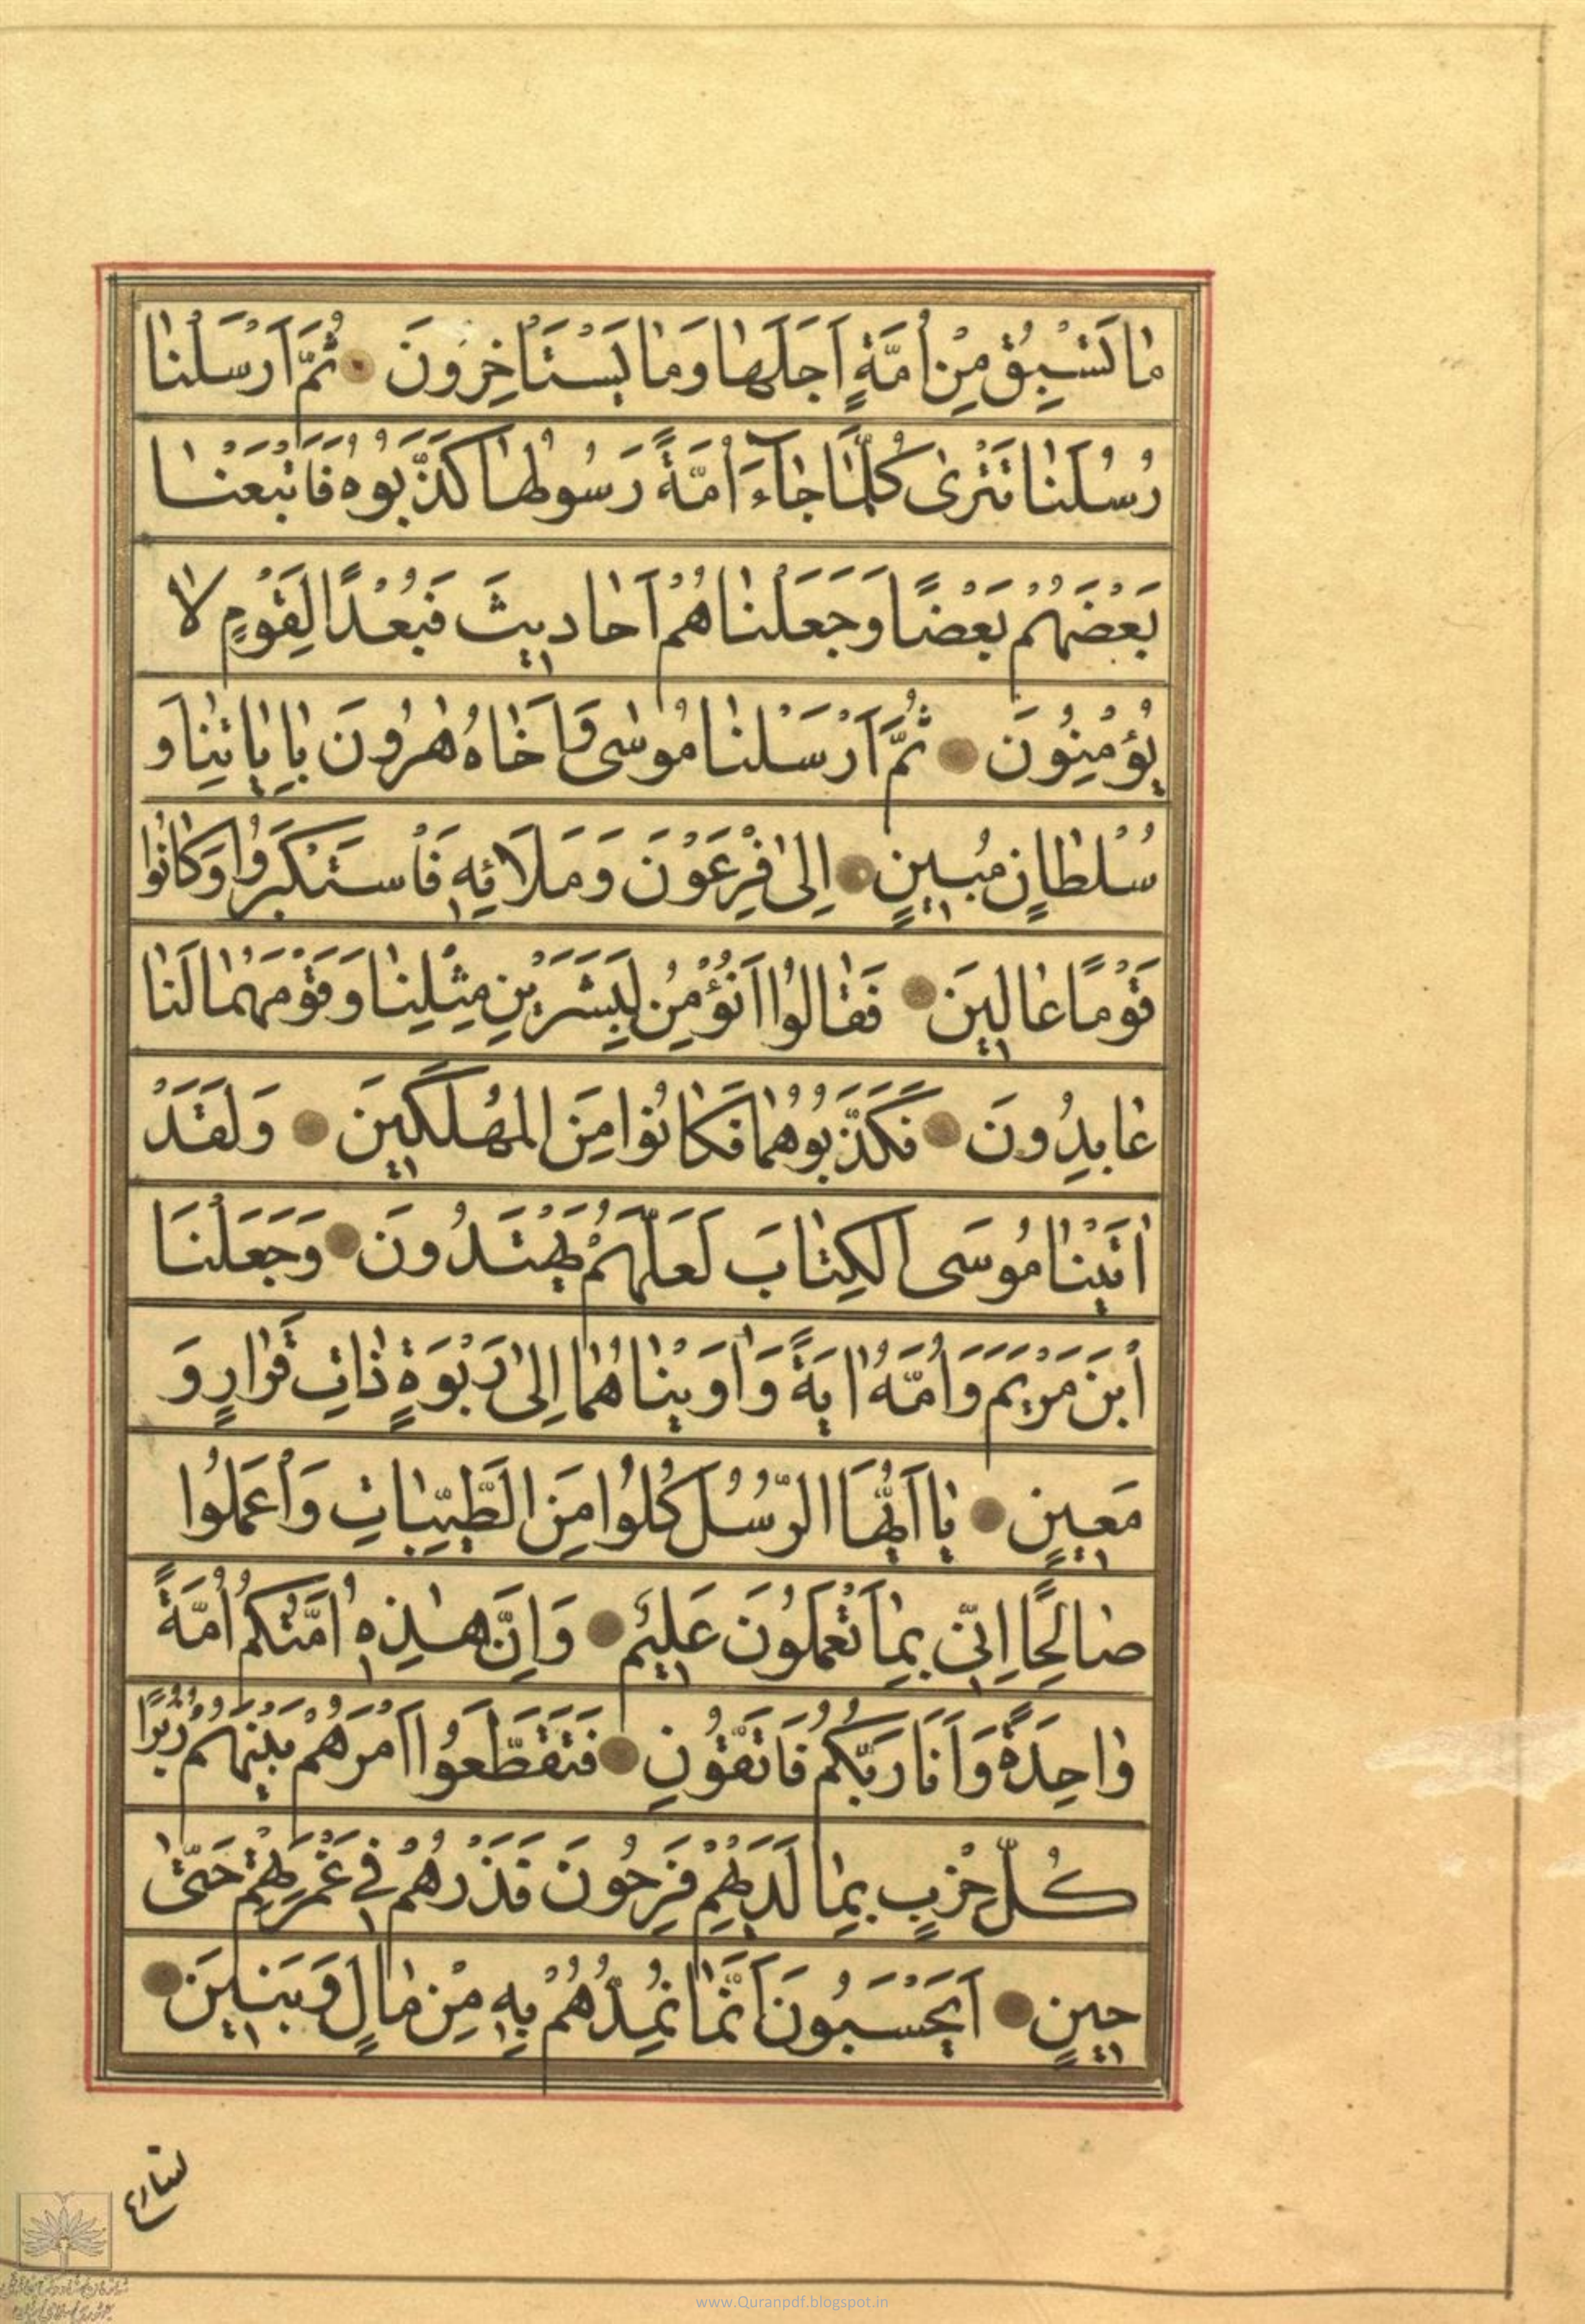 مٰا تَسْبِقُ مِنْ اُمَّةٍ اَجَلَهٰا وَمٰا يَسْتَاْخِرُونَ ثُمَّ اَرْسَلْنٰا
رُسُلَنٰا تَتْرىٰ كُلَّمٰا جٰآءَ اُمَّةً رَسُولُهٰا كَذَّبُوهُ فَاَتْبَعْنٰا
بَعْضَهُمْ بَعْضًا وَجَعَلْنٰاهُمْ اَحٰادِيثَ فَبُعْدًا لِقَوْمٍ لاٰ
يُؤْمِنُونَ ثُمَّ اَرْسَلْنٰا مُوسٰى وَاَخٰاهُ هٰرُونَ بِاٰيٰاتِنٰا وَ
سُلْطٰانٍ مُبِينٍ اِلىٰ فِرْعَوْنَ وَمَلَائِهِ فَاسْتَكْبَرُوا وَكٰانُوا
قَوْمًا عٰالِينَ فَقٰالُوا اَنُؤْمِنُ لِبَشَرَيْنِ مِثْلِنٰا وَقَوْمُهُمٰا لَنٰا
عٰابِدُونَ فَكَذَّبُوهُمٰا فَكٰانُوا مِنَ الْمُهْلَكِينَ وَلَقَدْ
اٰتَيْنٰا مُوسَى الْكِتٰابَ لَعَلَّهُمْ يَهْتَدُونَ وَجَعَلْنَا
ابْنَ مَرْيَمَ وَاُمَّهُ اٰيَةً وَاٰوَيْنٰاهُمٰا اِلىٰ رَبْوَةٍ ذٰاتِ قَرٰارٍ وَ
مَعِينٍ يٰا اَيُّهَا الرُّسُلُ كُلُوا مِنَ الطَّيِّبٰاتِ وَاعْمَلُوا
صٰالِحًا اِنّى بِمٰا تَعْمَلُونَ عَلِيمٌ وَاِنَّ هٰذِهِ اُمَّتُكُمْ اُمَّةً
وٰاحِدَةً وَاَنَا رَبُّكُمْ فَاتَّقُونِ فَتَقَطَّعُوا اَمْرَهُمْ بَيْنَهُمْ زُبُرًا
كُلُّ حِزْبٍ بِمٰا لَدَيْهِمْ فَرِحُونَ فَذَرْهُمْ فِى غَمْرَتِهِمْ حَتّٰى
حِينٍ اَيَحْسَبُونَ اَنَّمٰا نُمِدُّهُمْ بِهِ مِنْ مٰالٍ وَبَنِينَ
نسارع
www.Quranpdf.blogspot.in